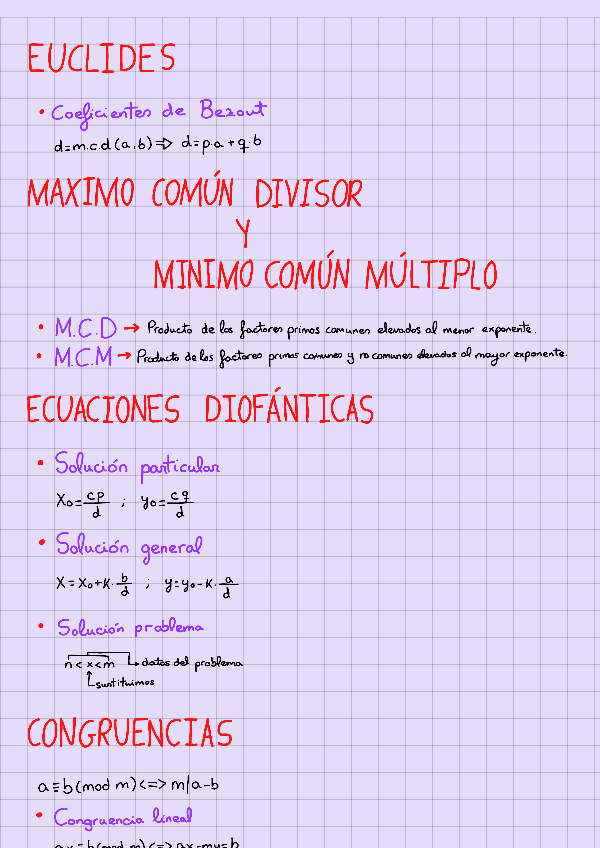 EUCLIDES
• Coeficientes de Bezout
d=m.c.d(a,b)=> d=p.a+q.b
MAXIMO COMÚN DIVISOR
Y
MINIMO COMÚN MÚLTIPLO
• M.C.D → Producto de los factores primos comunes elevados al menor exponente.
• M.C.M → Producto de los factores primos comunes y no comunes elevados al mayor exponente.
ECUACIONES DIOFÁNTICAS
• Solución particular
X₀=cp/d ; y₀=cq/d
• Solución general
X=X₀+K·b/d ; y=y₀-K·a/d
• Solución problema
n<x<m → datos del problema
sustituimos
CONGRUENCIAS
a≡b(mod m)<=> m|a-b
• Congruencia lineal
ax≡b(mod m)<=> ax-my=b